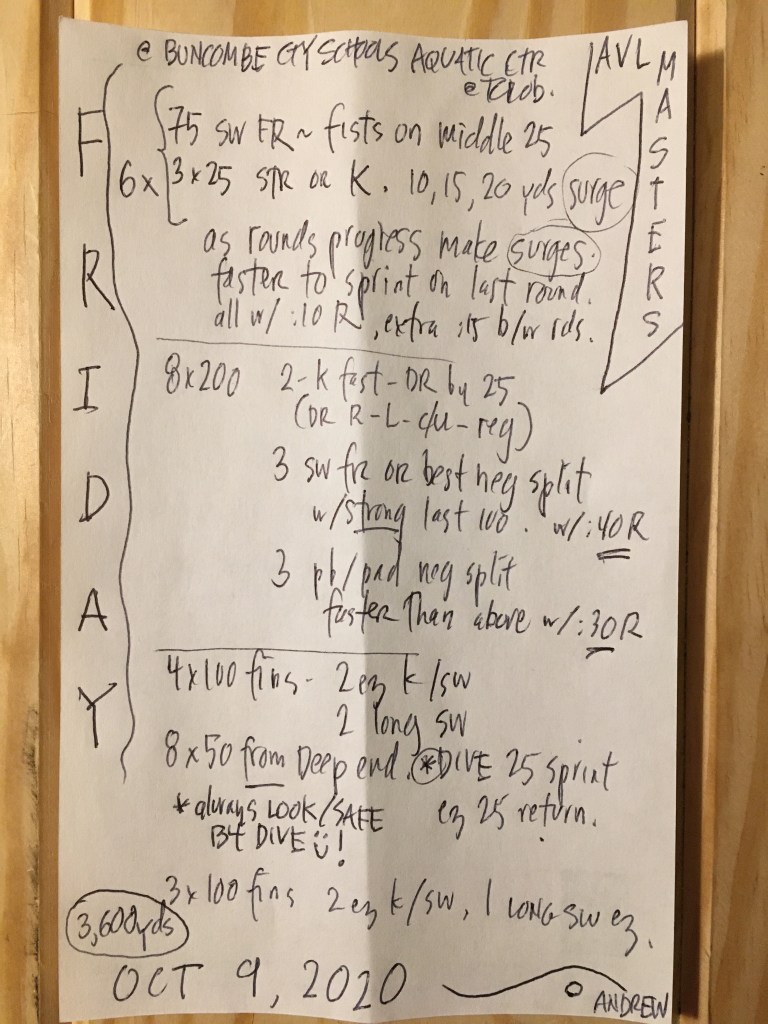 @ BUNCOMBE CTY SCHOOLS AQUATIC CTR
@
AVL MASTERS
FRIDAY
75 SW FR ~ fists on middle 25
6x 3x25 STR OR K. 10, 15, 20 yds surge
as rounds progress make surges.
faster to sprint on last round.
all w/ :10 R, extra :15 b/w rds.
8x200 2-k fast-DR by 25
(DR R-L-c/u-reg)
3 sw fr or best neg split
w/strong last 100. w/:40R
3 pb/pad neg split
faster Than above w/:30R
4x100 fins- 2 ez k/sw
2 long sw
8x50 from Deep end. *DIVE 25 sprint
*always LOOK/SAFE ez 25 return.
B4 DIVE !
3x100 fins 2 ez k/sw, 1 LONG SW ez.
3,600yds
OCT 9, 2020
ANDREW